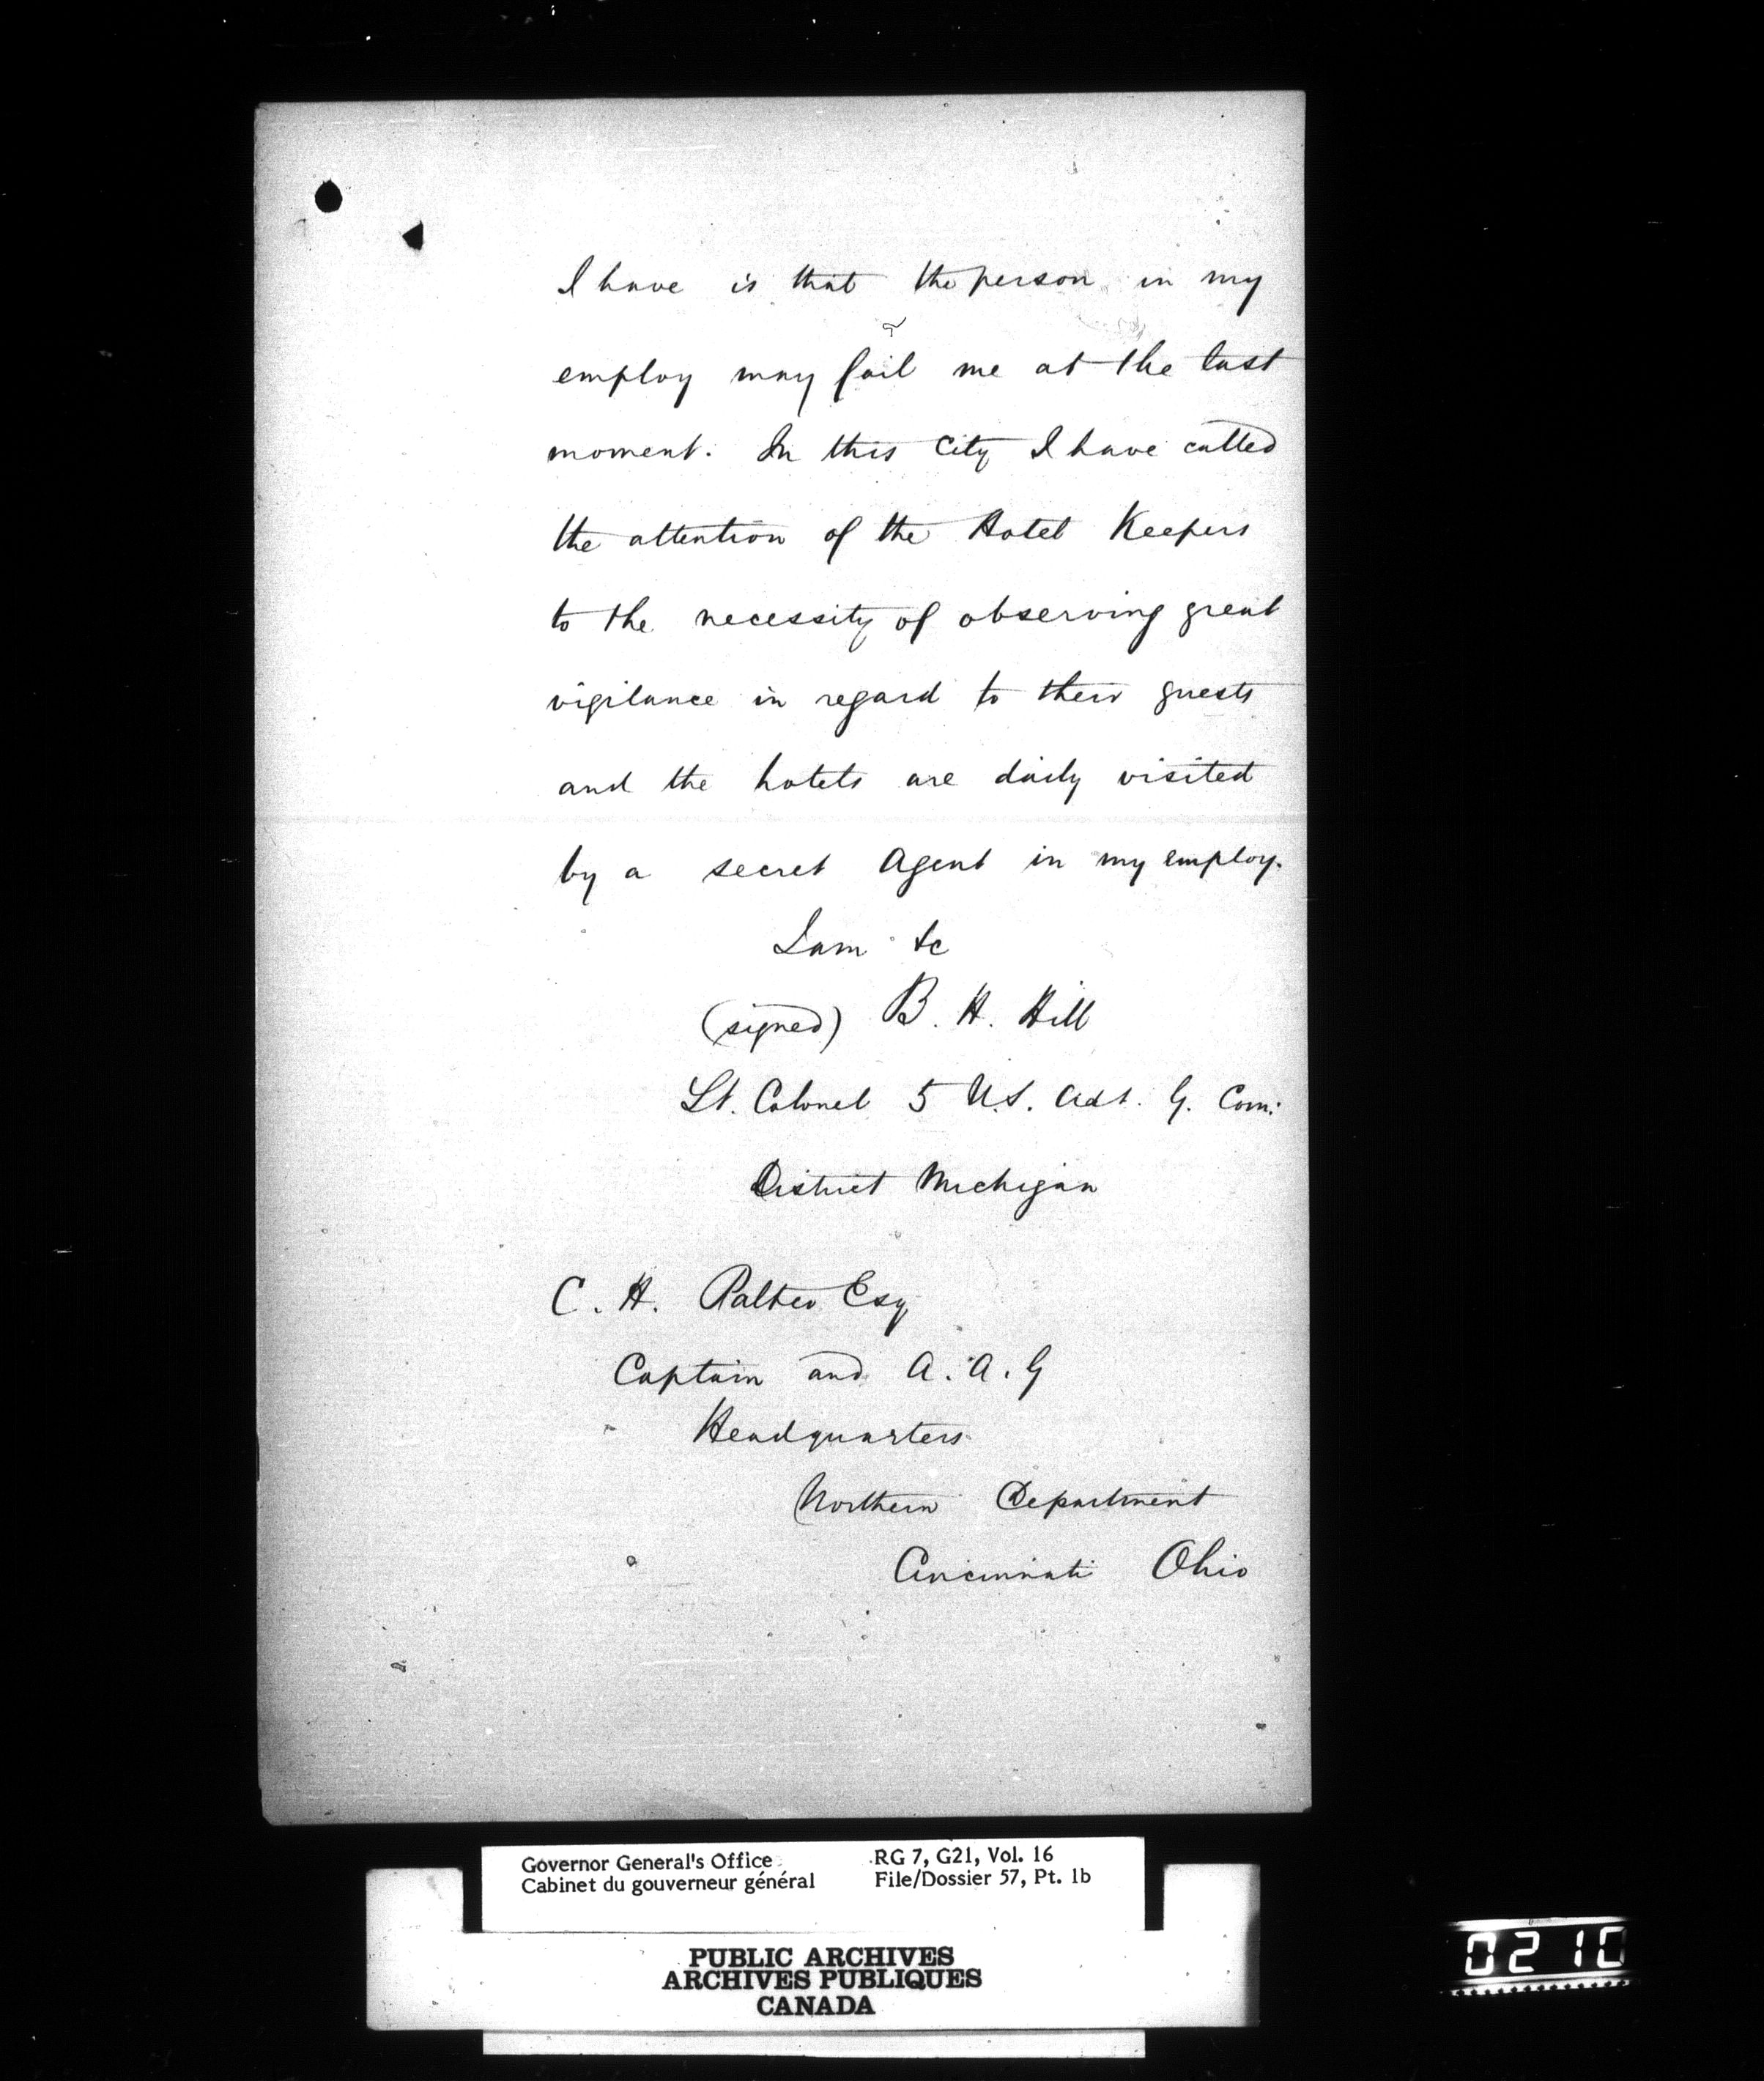 I have is that the person in my
employ may fail me at the last
moment. In this City I have called
the attention of the Hotel Keepers
to the necessity of observing great
vigilance in regard to their guests
and the hotels are daily visited
by a secret Agent in my employ.
I am &c
(signed) B. H. Hill
Lt. Colonel 5 U.S. Art. G. Com:
District Michigan
C. H. Palter Esq
Captain and A. A. G
Headquarters
Northern Department
Cincinnati Ohio
Governor General's Office RG 7, G21, Vol. 16
Cabinet du gouverneur général File/Dossier 57, Pt. 1b
PUBLIC ARCHIVES
ARCHIVES PUBLIQUES
CANADA
0210